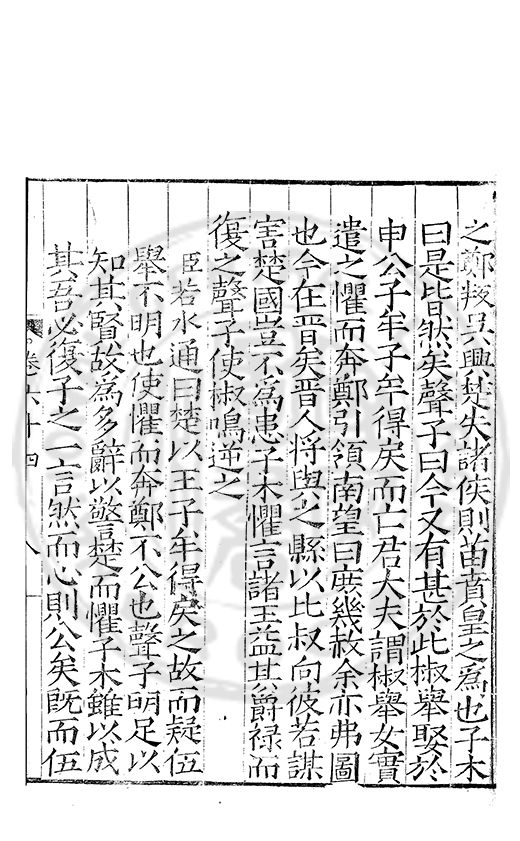 之鄭叛吳興楚失諸侯則苗賁皇之為也子木
曰是皆然矣聲子曰今又有甚於此椒舉娶於
申公子牟子牟得戾而亡君大夫謂椒舉女實
遣之懼而奔鄭引領南望曰庶幾赦余亦弗圖
也今在晉矣晉人將與之縣以比叔向彼若謀
害楚國豈不為患子木懼言諸王益其爵祿而
復之聲子使椒鳴逆之
臣若水通曰楚以王子牟得戾之故而疑伍
舉不明也使懼而奔鄭不公也聲子明足以
知其賢故為多辭以警楚而懼子木雖以成
其吾必復子之一言然而心則公矣既而伍
卷六十四
八